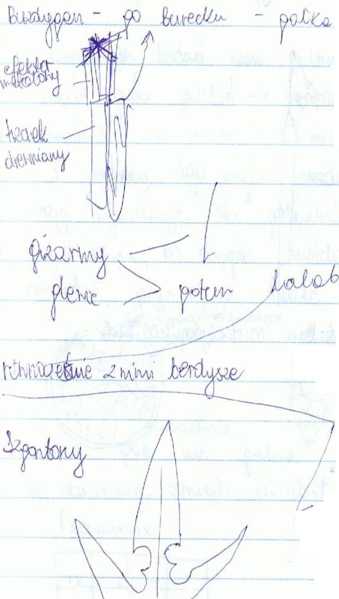 Buzdygan - po turecku - pałka
metalowy
trzonek
drewniany
gizarmy
glewie potem halab
równocześnie z nimi berdysze
Szpontony